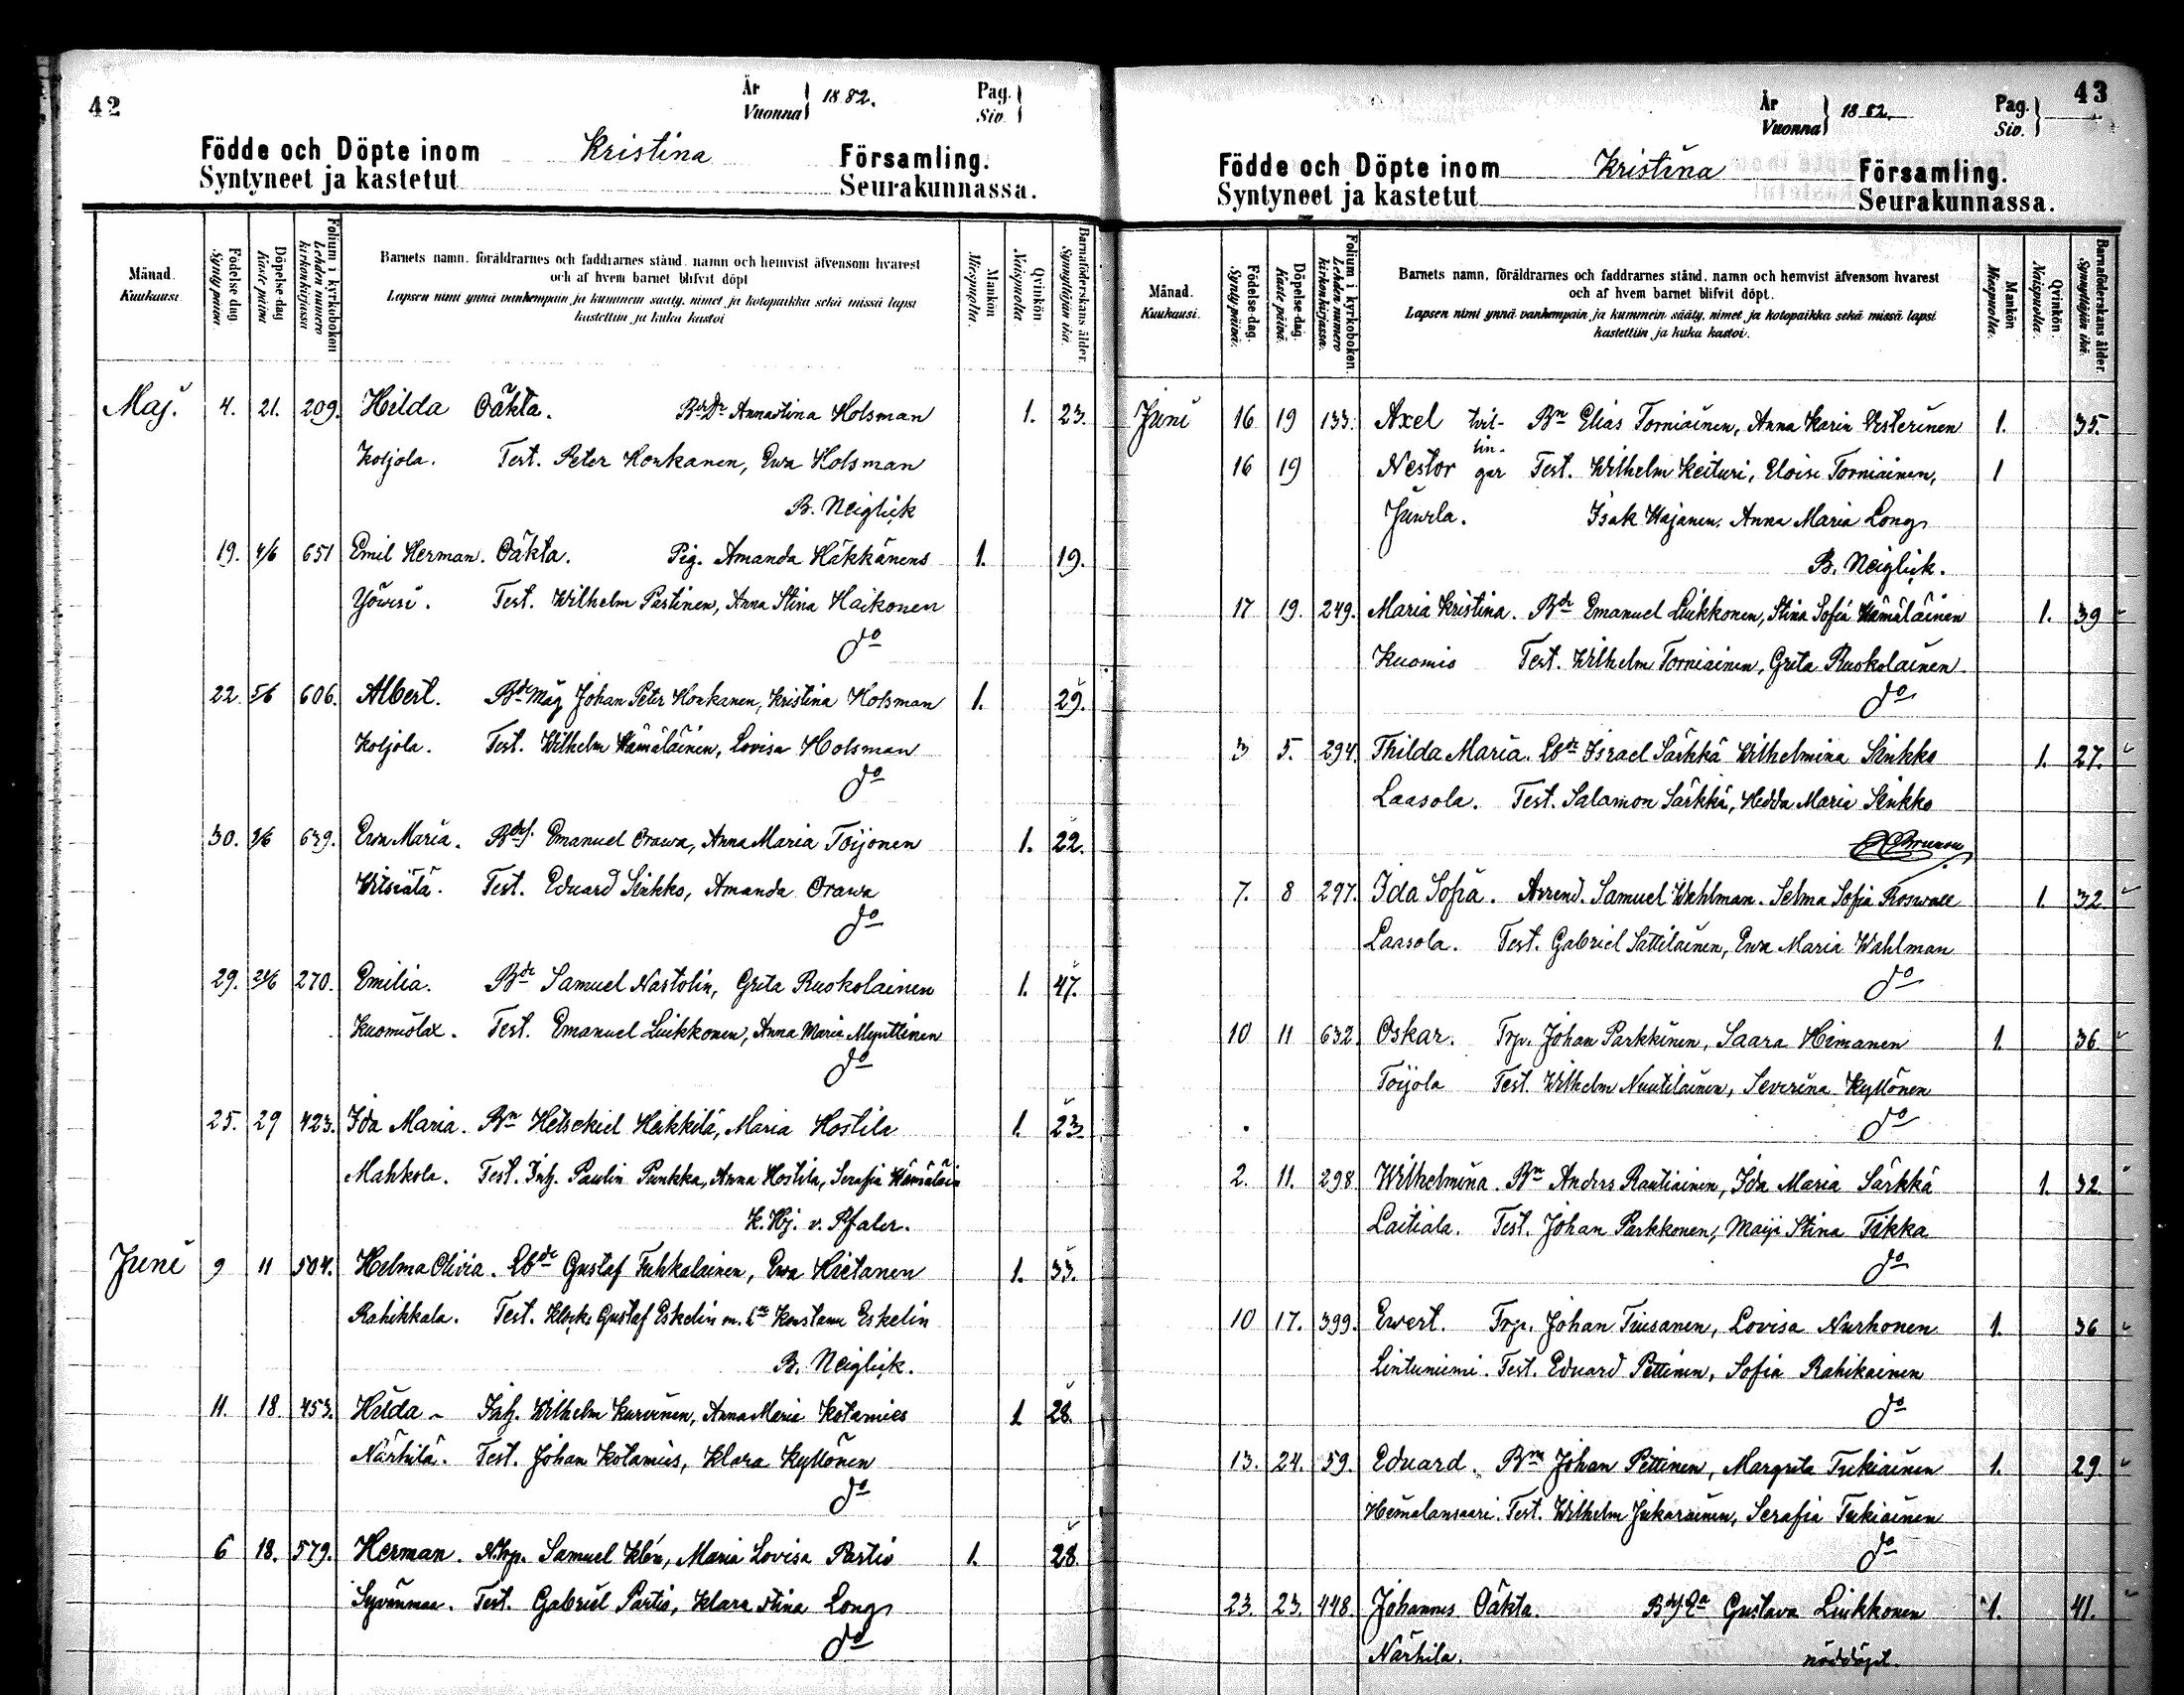 42
År
Vuonna
1882.
Pag.
Siv.
Födde och Döpte inom Kristina Församling.
Syntyneet ja kastetut Seurakunnassa.
Månad.
Kuukausi.
Födelse dag
Synty päivä
Döpelse dag
Kaste päivä
Folium i kyrkoboken
Lehden numero kirkonkirjassa
Barnets namn, föräldrarnes och faddrarnes stånd, namn och hemvist äfvensom hvarest
och af hvem barnet blifvit döpt
Lapsen nimi ynnä vanhempain ja kummein sääty, nimet ja kotopaikka sekä missä lapsi
kastettiin ja kuka kastoi
Mankön
Miespuolta.
Qvinkön
Naispuolta
Barnaföderskans ålder.
Synnyttäjän ikä.
Maj. 4. 21. 209. Hilda Oäkta. Annastina Holsman 1. 23.
Koljola. Test. Peter Honkanen, Ewa Holsman
B. Neiglick
19. 4/6 651 Emil Herman. Oäkta. Pig. Amanda Häkkänens 1. 19.
Test. Wilhelm Partinen, Anna Stina Haikonen
do
22. 5/6 606. Albert. Bde Måg Johan Peter Honkanen, Kristina Holsman 1. 29.
Koljola. Test. Wilhelm Hämäläinen, Lovisa Holsman
do
30. 639. Ewa Maria. Emanuel Orawa, Anna Maria Toijonen 1. 22.
Test. Eduard Sinkko, Amanda Orawa
do
29. 270. Emilia. Bde Samuel Nastolin, Grita Ruokolainen 1. 47.
Test. Emanuel Liukkonen, Anna Maria Myuttinen
do
25. 29 423. Ida Maria. Bn Hetsekiel Heikkilä, Maria Hostila 1. 23.
Mahkola. Test. Inh. Paulin Punkka, Anna Hostila, Serafia Hämäläin
K. Hj. v. Pfaler.
Juni 9 11 504. Helma Olivia. Lbde Gustaf Tuhkalainen, Ewa Hietanen 1. 33.
Rahikkala. Test. Klock. Gustaf Eskelin Eskelin
B. Neiglick.
11. 18. 453. Hilda Inh. Wilhelm Kurvinen, Anna Maria Kotamies 1 28.
Närhilä. Test. Johan Kotamies, Klara Kyllönen
do
6 18. 579. Herman. Samuel Klén, Maria Lovisa Partio 1. 28.
Syvänmaa. Test. Gabriel Partio, Klara Stina Long
do
43
År
Vuonna
1882.
Pag.
Siv.
Födde och Döpte inom Kristina Församling.
Syntyneet ja kastetut Seurakunnassa.
Månad.
Kuukausi.
Födelse dag.
Synty päivä.
Döpelse dag.
Kaste päivä.
Folium i kyrkoboken.
Lehden numero kirkonkirjassa.
Barnets namn, föräldrarnes och faddrarnes stånd, namn och hemvist äfvensom hvarest
och af hvem barnet blifvit döpt.
Lapsen nimi ynnä vanhempain ja kummein sääty, nimet ja kotopaikka sekä missä lapsi
kastettiin ja kuka kastoi.
Mankön
Miespuolta.
Qvinkön
Naispuolta.
Barnaföderskans ålder.
Synnyttäjän ikä.
Juni 16 19 133. Axel tvil- Bn Elias Torniainen, Anna Karin Vesterinen 1. 35.
lin-
16 19 Nestor gar Test. Wilhelm Keituri, Eloise Torniainen, 1
Isak Hajanen, Anna Maria Long
B. Neiglick.
17 19. 249. Maria Kristina. Bde Emanuel Liukkonen, Stina Sofia Hämäläinen 1. 39
Kuomio Test. Wilhelm Torniainen, Grita Ruokolainen
do
3 5. 294. Thilda Maria. Lbde Israel Särkkä Wilhelmina Sinkko 1. 27.
Laasola. Test. Salamon Särkkä, Hedda Maria Sinkko
Brunou
7. 8 297. Ida Sofia. Arrend. Samuel Wahlman. Selma Sofia Roswall 1. 32.
Laasola. Test. Gabriel Sattilainen, Ewa Maria Wahlman
do
10 11 632 Oskar. Trp. Johan Parkkinen, Saara Himanen 1. 36.
Toijola Test. Wilhelm Nuutilainen, Severina Kyllönen
do
2. 11. 298 Wilhelmina. Bn Anders Rautiainen, Ida Maria Särkkä 1. 32.
Laitiala. Test. Johan Parkkonen, Maija Stina Tikka
do
10 17. 399. Ewert. Trp. Johan Tiusanen, Lovisa Nurhonen 1. 36
Lintuniemi. Test. Eduard Pettinen, Sofia Rahikainen
do
13. 24. 59. Eduard. Johan Pettinen, Margreta Tukiainen 1. 29
Himalansaari. Test. Wilhelm Jukarainen, Serafia Tukiainen
do
23. 23. 448. Johannes Oäkta. Gustava Liukkonen 1. 41.
Närhila. nöddöpt.